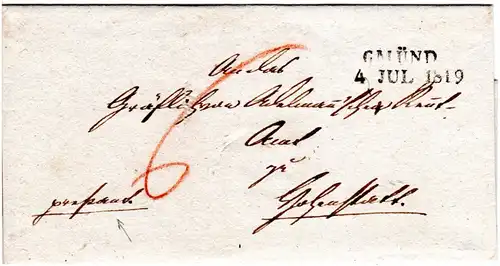 GMÜND
4 JUL 1819
An das
Gräflich von Adelmann'sche Rent-
Amt
zu
Hohenstatt.
6